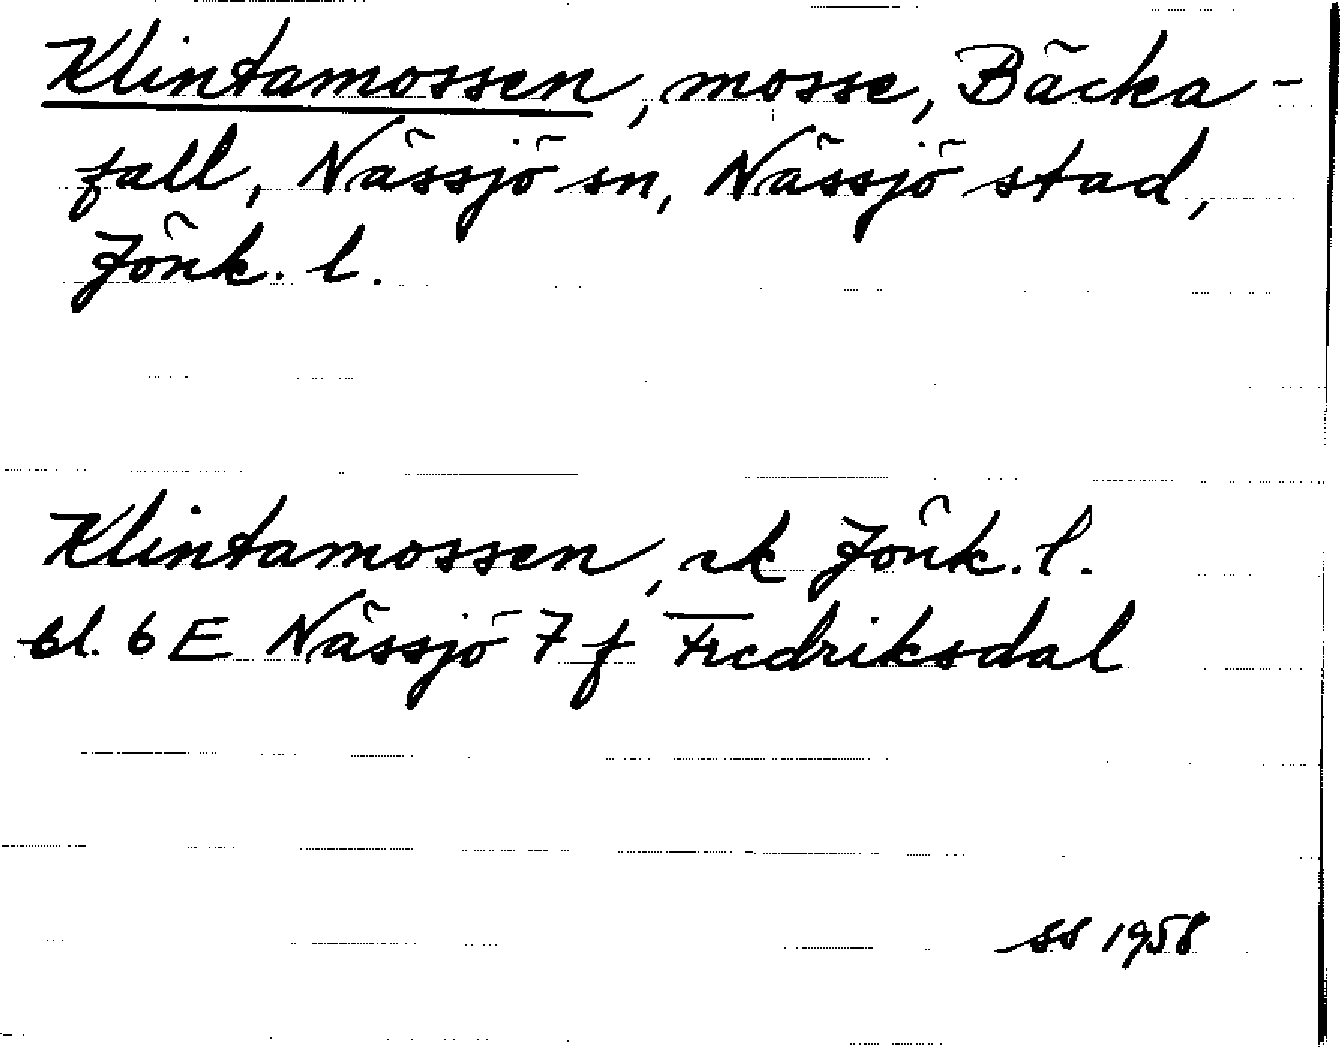 Klintamossen, mosse, Bäcka-
fall, Nässjö sn, Nässjö stad,
Jönk. l.
Klintamossen, rk Jönk. l.
bl. 6 E Nässjö 7 f Fredriksdal
SS 1958